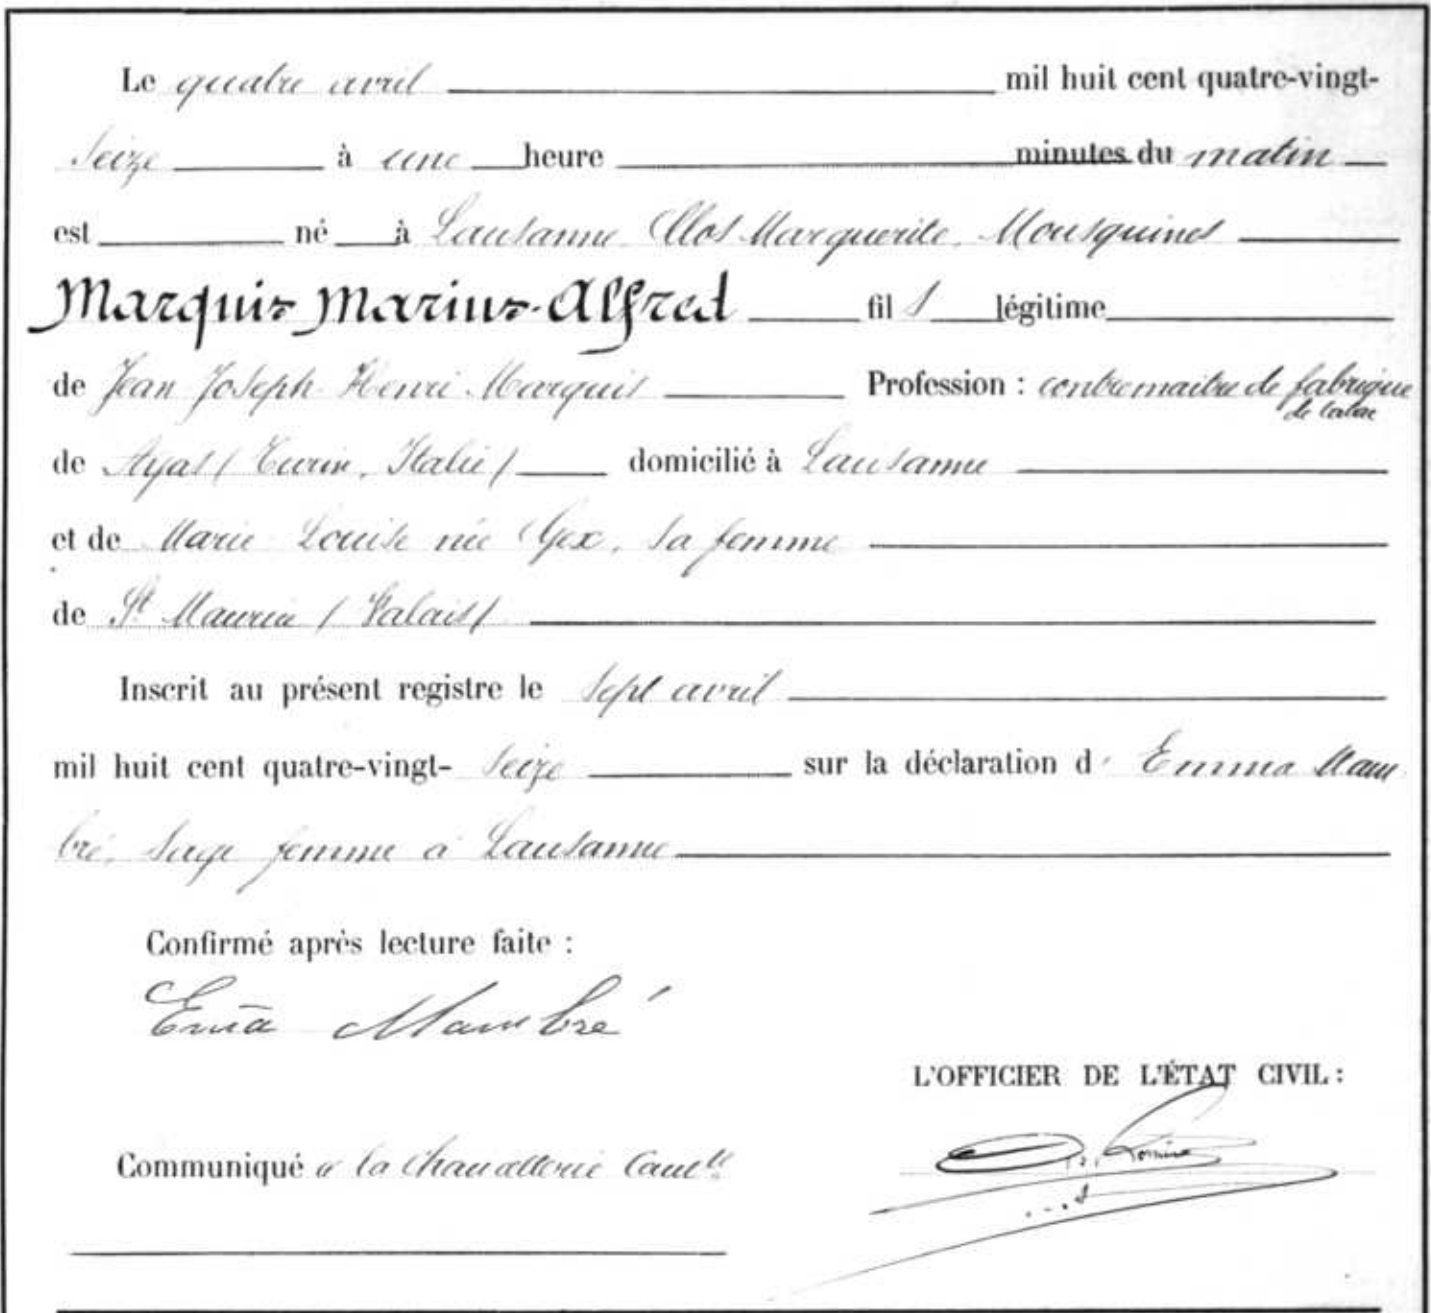 Le quatre avril mil huit cent quatre-vingt-
seize à une heure minutes du matin
est né à Lausanne, Clos Marguerite, Mousquines
Marquis Marius-Alfred fil s légitime
de Jean Joseph Henri Marquis Profession : contremaitre de fabrique
de tabac
de Ayas (Turin, Italie) domicilié à Lausanne
et de Marie Louise née Gex, sa femme
de St Maurice (Valais)
Inscrit au présent registre le sept avril
mil huit cent quatre-vingt- seize sur la déclaration d' Emma Mam
bré, sage femme à Lausanne
Confirmé après lecture faite :
Em̄a Mambré
L'OFFICIER DE L'ÉTAT CIVIL :
Communiqué à la Chancellerie Cantlle